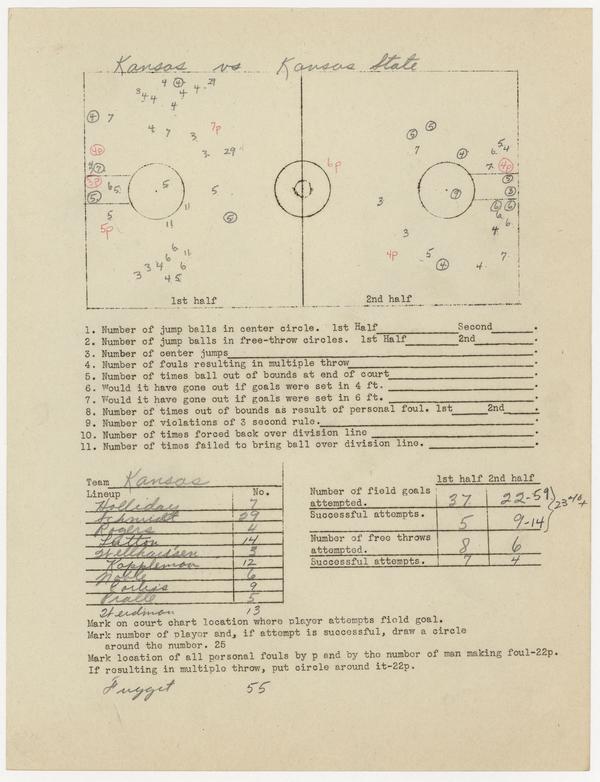 Kansas vs Kansas State
4 4 29
3 4 4 4 4
4
4 7
4 7 3 7p
5 5
7 4 5 4
6
4p 3 29 6p 7 4p
4 7
5p 6 5 5 5 5
5 9 3
3 6 6
5 11 5 6
5p 11 3 4 6
6 11 4p 5 7
3 3 4 6 4 4
4 5
1st half 2nd half
1. Number of jump balls in center circle. 1st Half Second .
2. Number of jump balls in free-throw circles. 1st Half 2nd .
3. Number of center jumps .
4. Number of fouls resulting in multiple throw .
5. Number of times ball out of bounds at end of court .
6. Would it have gone out if goals were set in 4 ft. .
7. Would it have gone out if goals were set in 6 ft. .
8. Number of times out of bounds as result of personal foul. 1st 2nd .
9. Number of violations of 3 second rule. .
10. Number of times forced back over division line .
11. Number of times failed to bring ball over division line. .
Team Kansas
Lineup No.
Holliday 7
Schmidt 29
Rogers 4
Sutton 14
Wellhausen 3
Kappleman 12
Noble 6
Corbis 9
Pralle 5
Weidman 13
1st half 2nd half
Number of field goals attempted. 37 22-59
Successful attempts. 5 9-14
23%+
Number of free throws attempted. 8 6
Successful attempts. 7 4
Mark on court chart location where player attempts field goal.
Mark number of player and, if attempt is successful, draw a circle
around the number. 25
Mark location of all personal fouls by p and by the number of man making foul-22p.
If resulting in multiple throw, put circle around it-22p.
Nugget 55